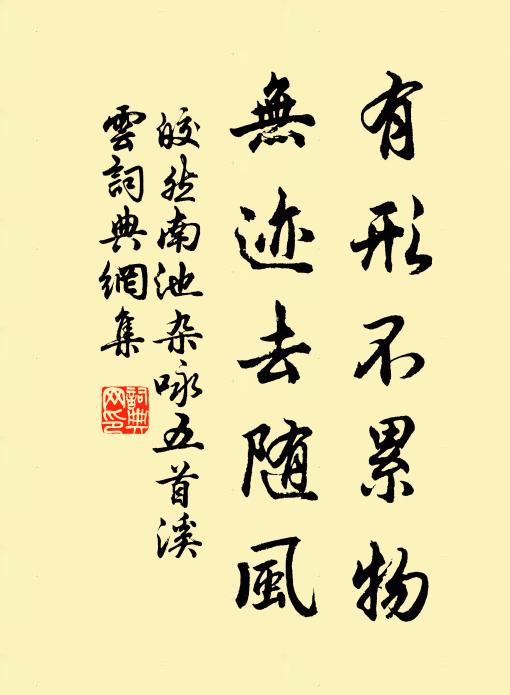 有形不累物
無迹去随風
皎然南池杂咏五首溪
雲詞典網集
詞典
网印